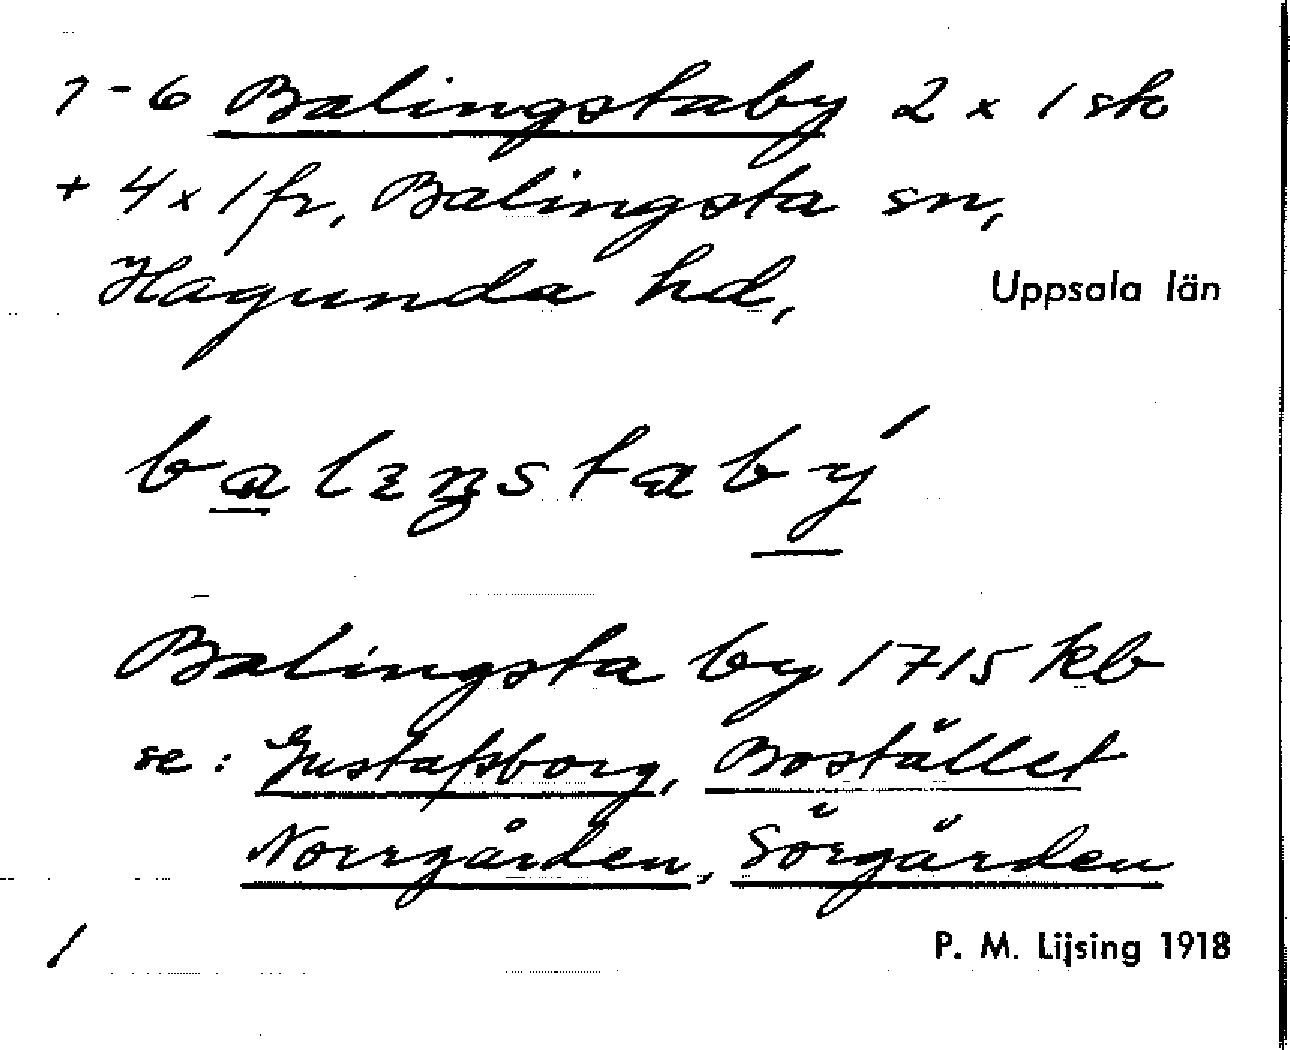 1-6 Balingstaby 2 x 1 sk
+ 4 x 1 fr, Balingsta sn,
Hagunda hd, Uppsala län
Balingsta by 1715 kb
se: Gustafsborg, Bostället
Norrgården, Sörgården
/
P. M. Lijsing 1918